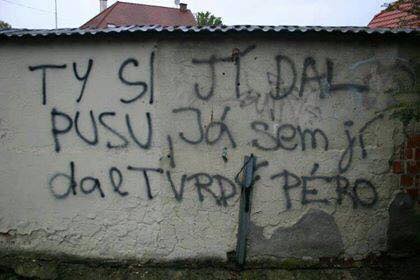 TY SI JÍ DAL
PUSU, Já sem jí
dal TVRDÝ PÉRO